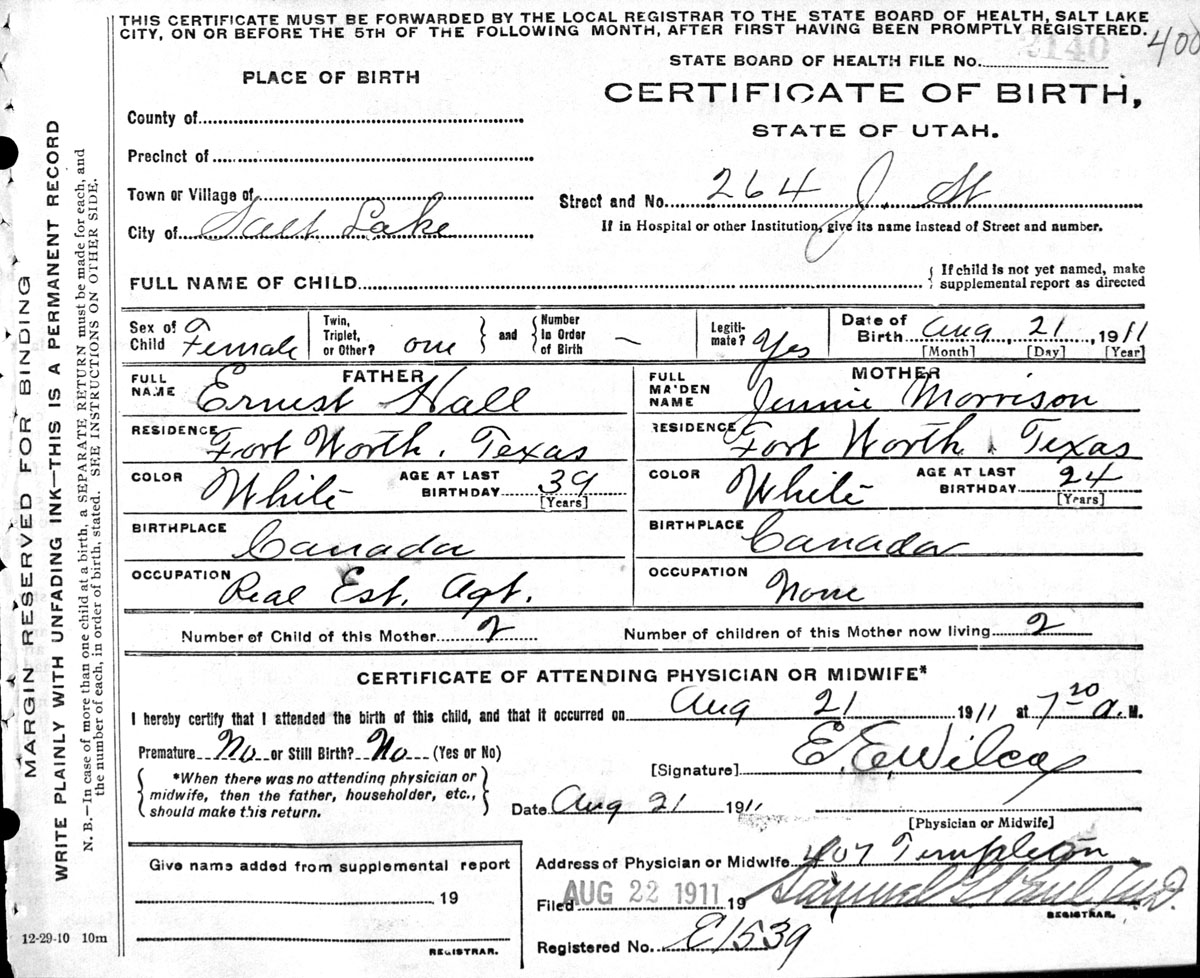 THIS CERTIFICATE MUST BE FORWARDED BY THE LOCAL REGISTRAR TO THE STATE BOARD OF HEALTH, SALT LAKE
CITY, ON OR BEFORE THE 5TH OF THE FOLLOWING MONTH, AFTER FIRST HAVING BEEN PROMPTLY REGISTERED.
400
STATE BOARD OF HEALTH FILE NO. 2140
PLACE OF BIRTH
CERTIFICATE OF BIRTH,
STATE OF UTAH.
County of
Precinct of
Town or Village of
City of Salt Lake
Street and No. 264 J. St
If in Hospital or other Institution, give its name instead of Street and number.
FULL NAME OF CHILD
{ If child is not yet named, make
supplemental report as directed
Sex of Child Female
Twin, Triplet, or Other? one } and { Number In Order of Birth —
Legitimate? Yes
Date of Birth Aug, 21, 1911
[Month] [Day] [Year]
FATHER
FULL NAME Ernest Hall
RESIDENCE Fort Worth, Texas
COLOR White AGE AT LAST BIRTHDAY 39 [Years]
BIRTHPLACE Canada
OCCUPATION Real Est. Agt.
MOTHER
FULL MAIDEN NAME Jennie Morrison
RESIDENCE Fort Worth, Texas
COLOR White AGE AT LAST BIRTHDAY 24 [Years]
BIRTHPLACE Canada
OCCUPATION None
Number of Child of this Mother 2 Number of children of this Mother now living 2
CERTIFICATE OF ATTENDING PHYSICIAN OR MIDWIFE*
I hereby certify that I attended the birth of this child, and that it occurred on Aug 21 1911 at 7 20 a. M.
Premature No or Still Birth? No (Yes or No)
[Signature] E. E. Wilcox
{ *When there was no attending physician or
midwife, then the father, householder, etc.,
should make this return. }
Date Aug 21 1911
[Physician or Midwife]
Give name added from supplemental report
19
REGISTRAR.
Address of Physician or Midwife 407 Templeton
Filed AUG 22 1911 19 Samuel G. Paul M.D.
REGISTRAR.
Registered No. E1539
12-29-10 10m
MARGIN RESERVED FOR BINDING
WRITE PLAINLY WITH UNFADING INK—THIS IS A PERMANENT RECORD
N. B.—In case of more than one child at a birth, a SEPARATE RETURN must be made for each, and
the number of each, in order of birth, stated. SEE INSTRUCTIONS ON OTHER SIDE.